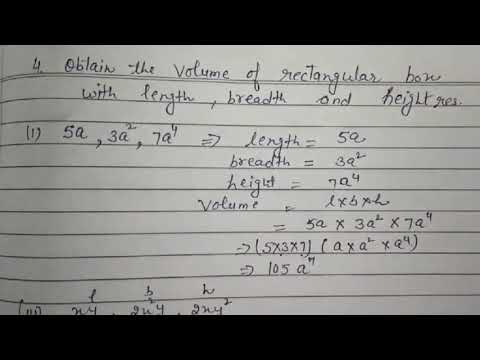 4. Obtain the volume of rectangular box
with length, breadth and height res.
(i) 5a, 3a², 7a⁴ ⇒ length = 5a
breadth = 3a²
height = 7a⁴
Volume = l×b×h
= 5a × 3a² × 7a⁴
⇒ (5×3×7) (a×a²×a⁴)
⇒ 105 a⁷
l b h
xy, 2x²y, 2xy²